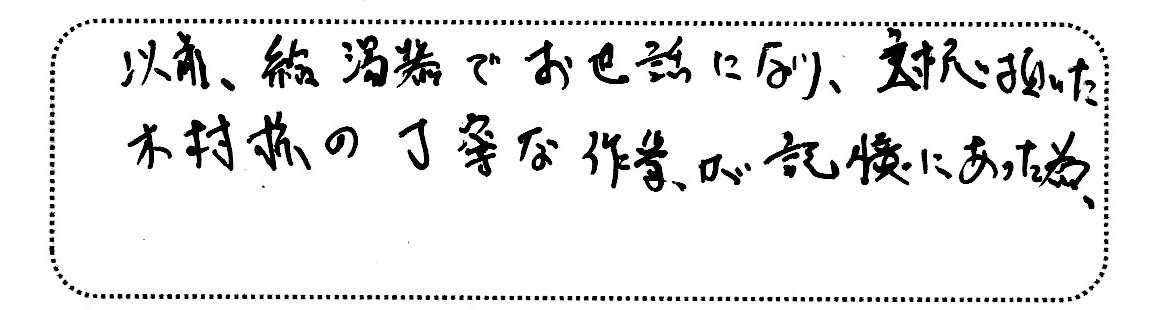 以前、給湯器でお世話になり、対応頂いた
木村様の丁寧な作業、が記憶にあった為、